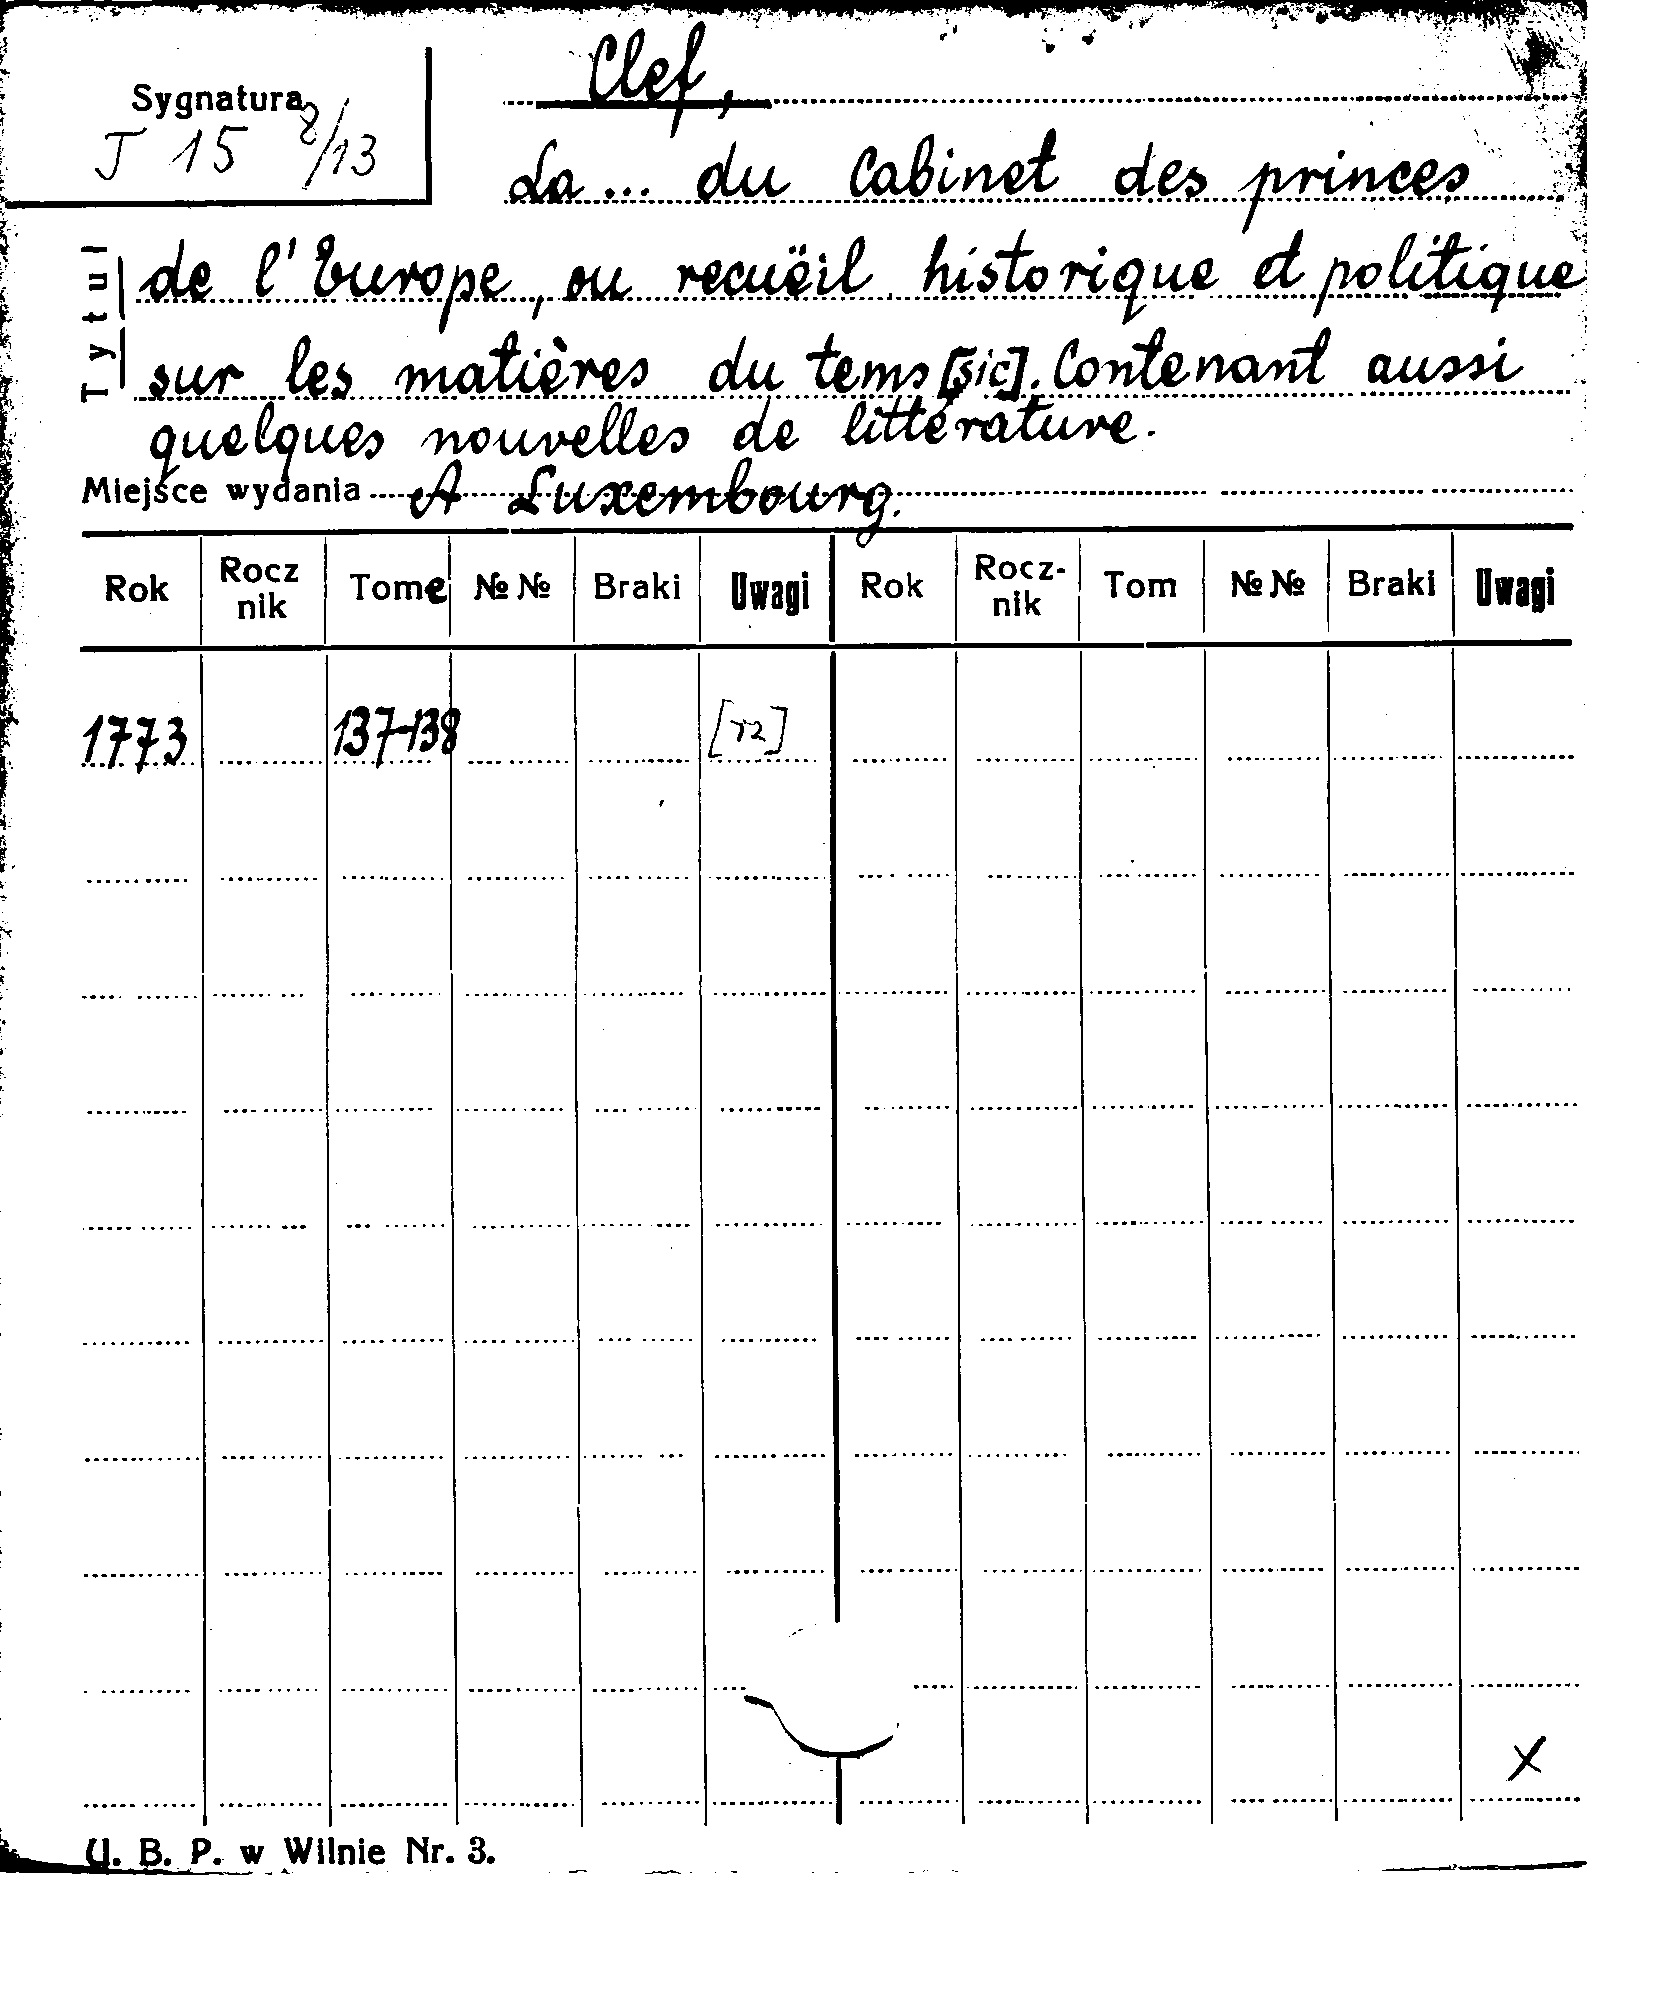 Clef,
Sygnatura
J 15 8/13
La ... du Cabinet des princes
Tytuł
de l'Europe, ou recuëil historique et politique
sur les matières du tems [sic]. Contenant aussi
quelques nouvelles de littérature.
Miejsce wydania A Luxembourg.
Rok Rocznik Tome №№ Braki Uwagi Rok Rocz-nik Tom №№ Braki Uwagi
1773 137-138
x
U. B. P. w Wilnie Nr. 3.